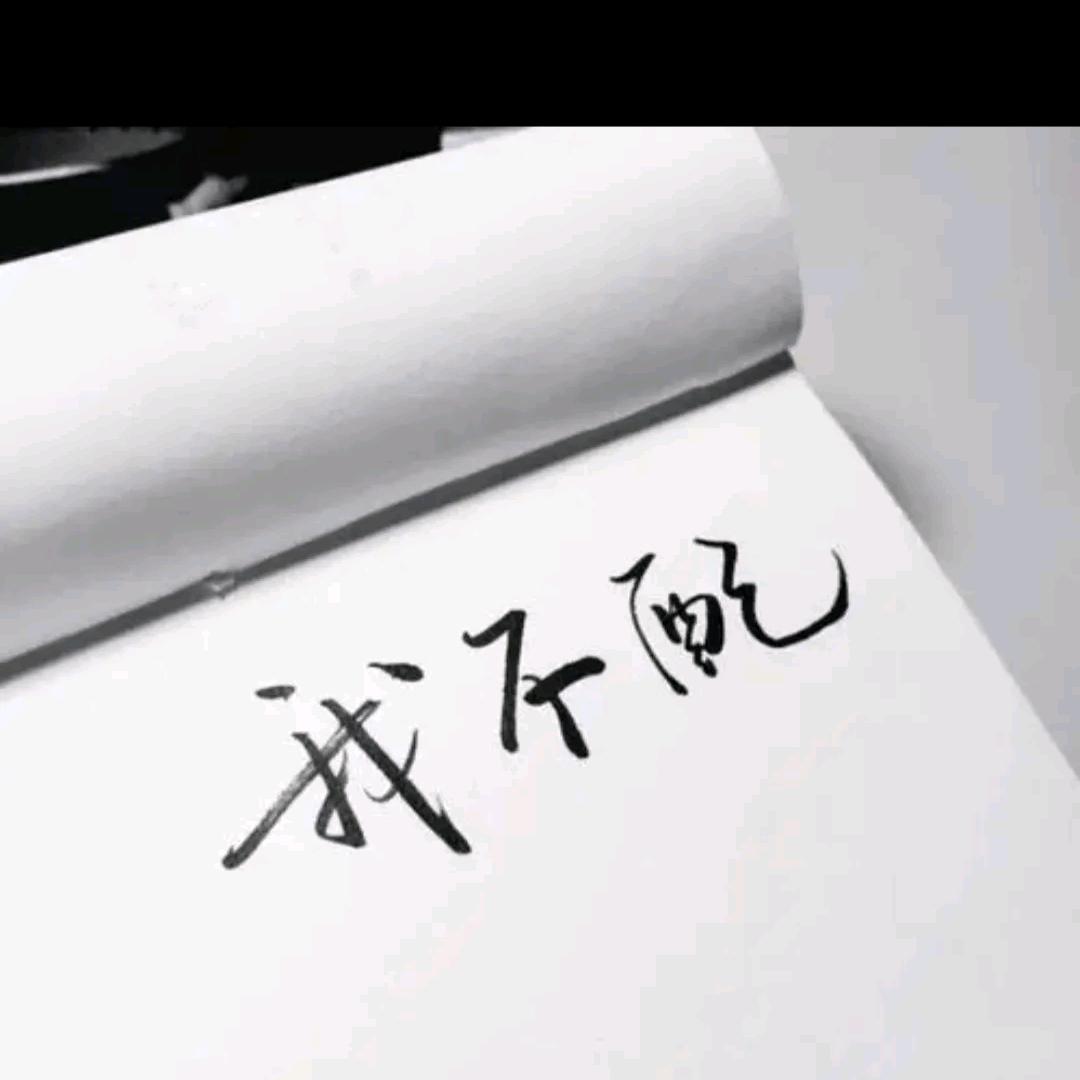 我不配